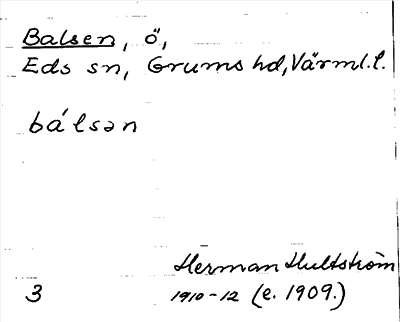 Balsen, ö,
Eds sn, Grums hd, Värml.l.
bálsən
Herman Hultström
3 1910-12 (e. 1909.)